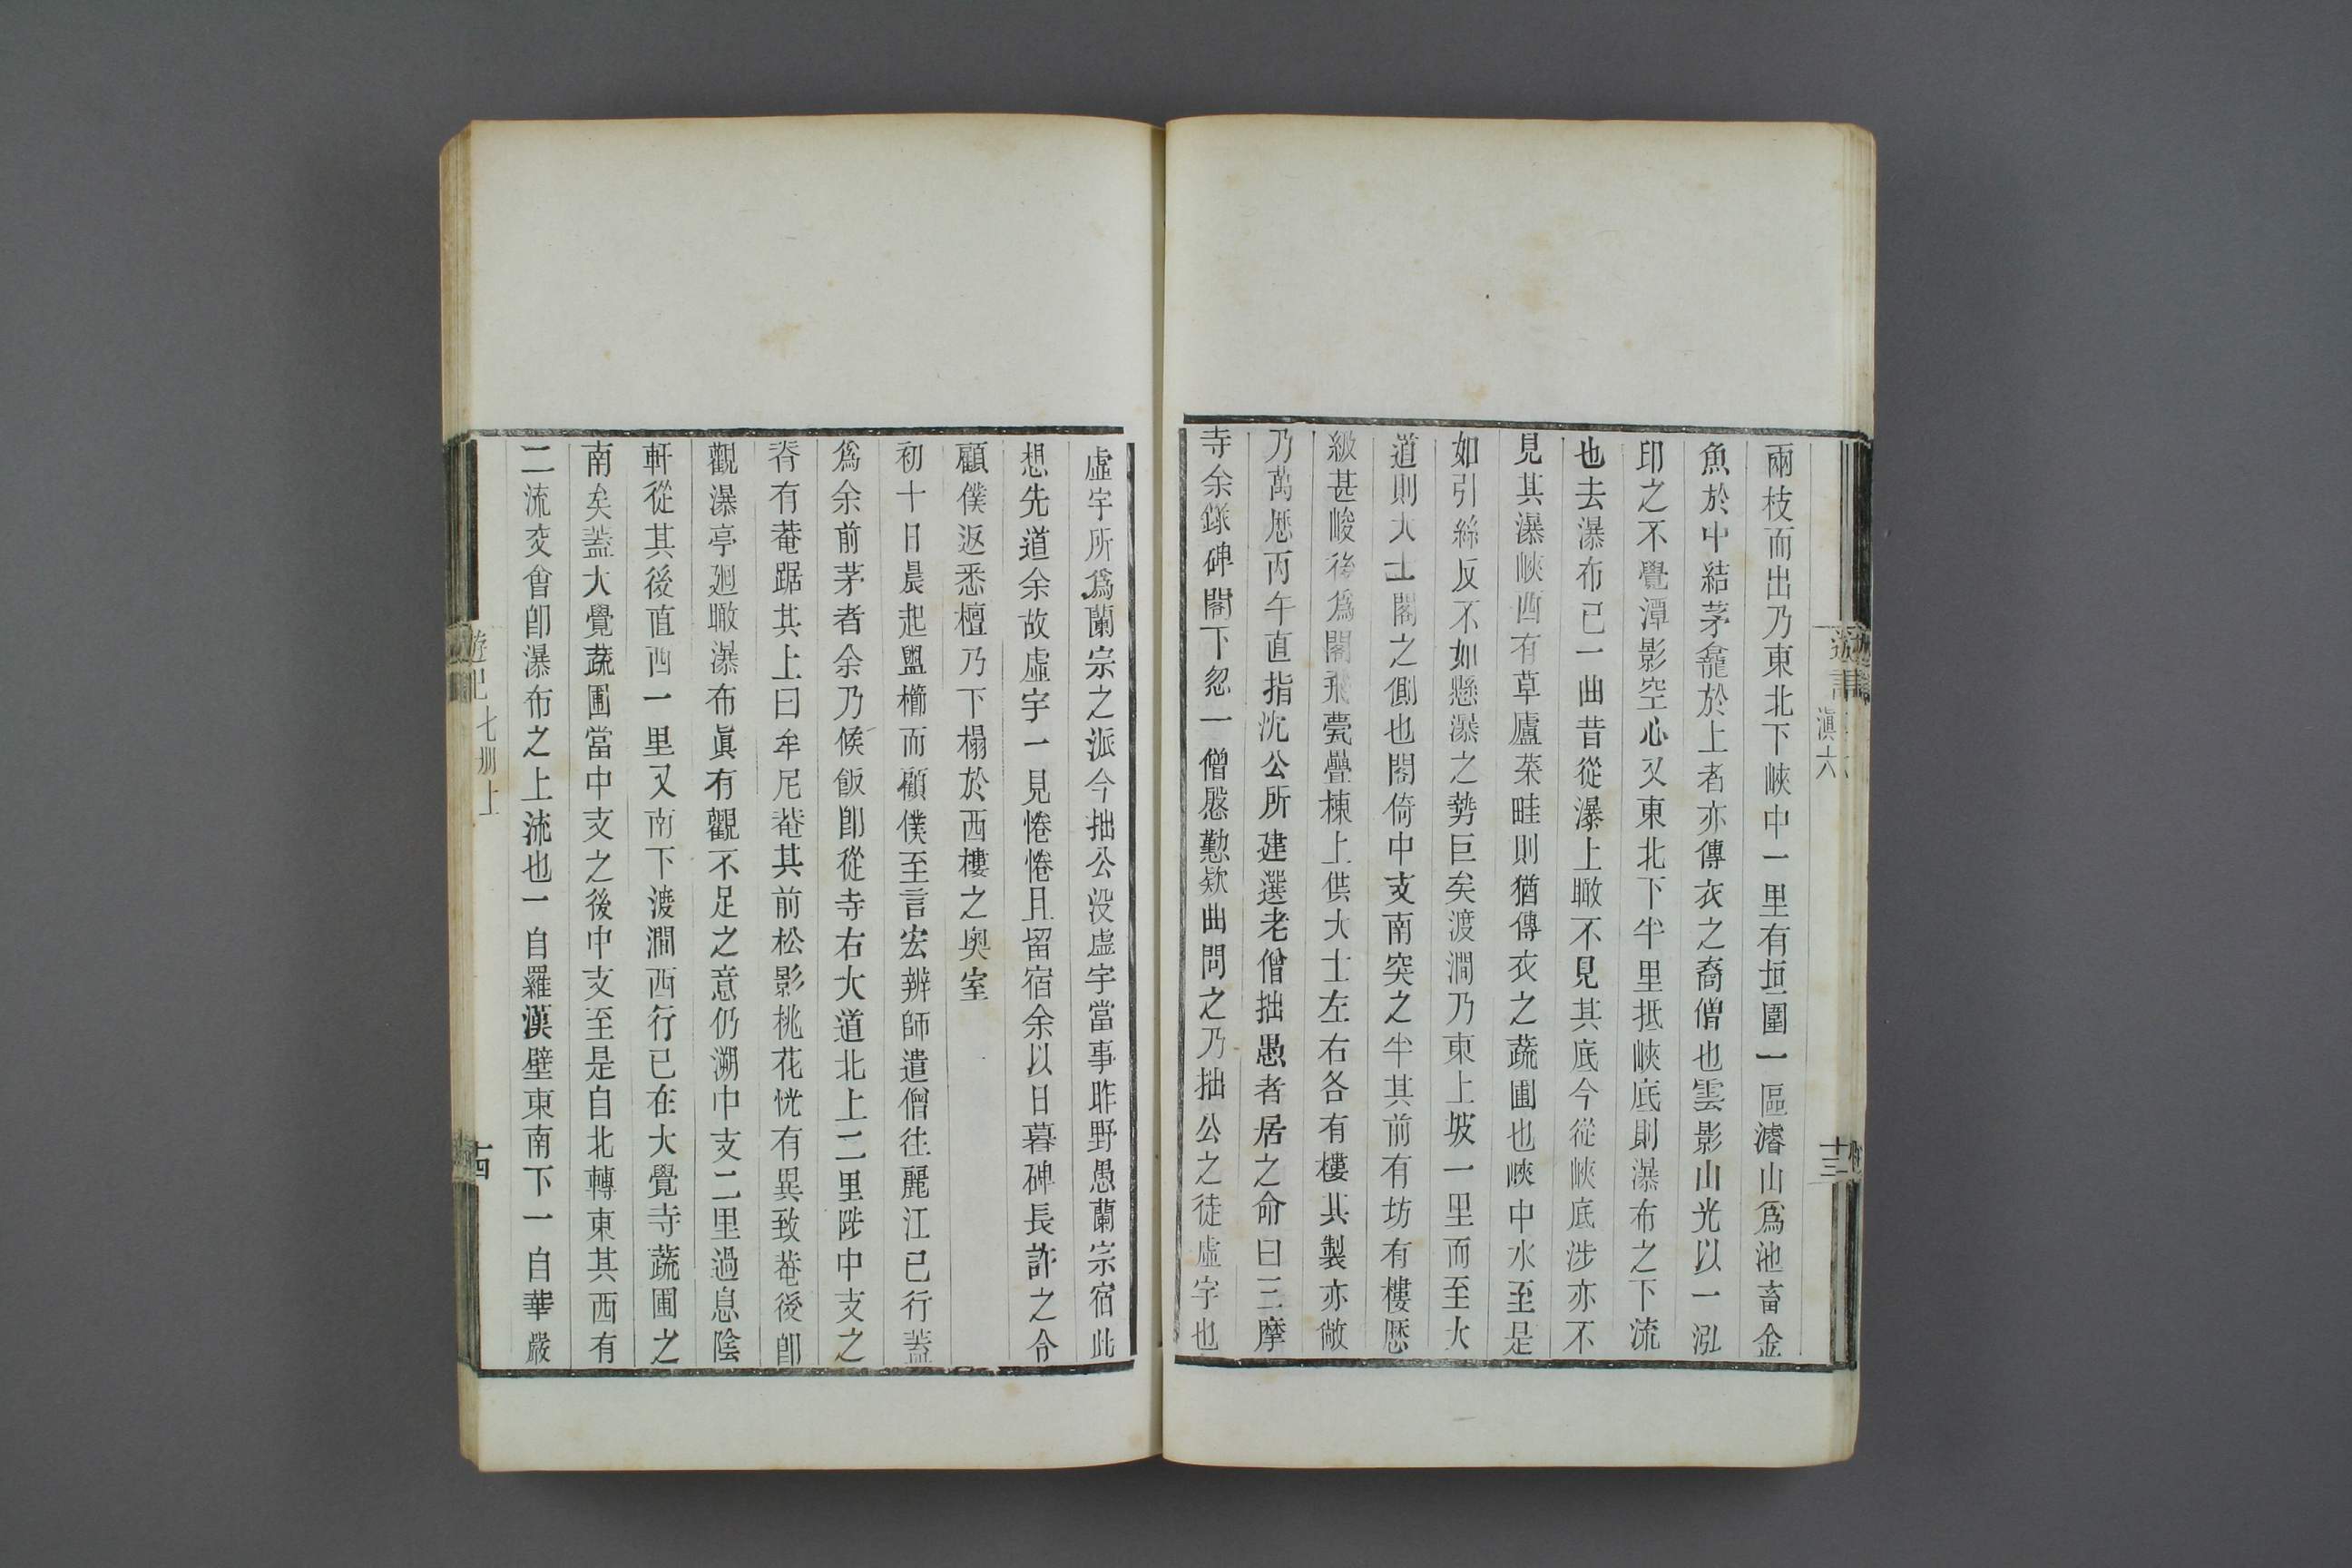 滇六
十三
兩枝而出乃東北下峽中一里有垣圍一區濬山爲池畜金
魚於中結茅龕於上者亦傳衣之裔僧也雲影山光以一泓
印之不覺潭影空心又東北下半里抵峽底則瀑布之下流
也去瀑布已一曲昔從瀑上瞰不見其底今從峽底涉亦不
見其瀑峽西有草廬菜畦則猶傳衣之蔬圃也峽中水至是
如引絲反不如懸瀑之勢巨矣渡澗乃東上坡一里而至大
道則大士閣之側也閣倚中支南突之半其前有坊有樓歷
級甚峻後爲閣飛甍疊棟上供大士左右各有樓其製亦敞
乃萬歷丙午直指沈公所建選老僧拙愚者居之命曰三摩
寺余錄碑閣下忽一僧慇懃欵曲問之乃拙公之徒虛宇也
虛宇所爲蘭宗之派今拙公沒虛宇當事昨野愚蘭宗宿此
想先道余故虛宇一見惓惓且留宿余以日暮碑長許之令
顧僕返悉檀乃下榻於西樓之奧室
初十日晨起盥櫛而顧僕至言宏辨師遣僧往麗江已行蓋
爲余前茅者余乃候飯卽從寺右大道北上二里陟中支之
脊有菴踞其上曰牟尼菴其前松影桃花恍有異致菴後卽
觀瀑亭廻瞰瀑布眞有觀不足之意仍溯中支二里過息陰
軒從其後直西一里又南下渡澗西行已在大覺寺蔬圃之
南矣蓋大覺蔬圃當中支之後中支至是自北轉東其西有
二流交會卽瀑布之上流也一自羅漢壁東南下一自華嚴
遊記七冊上
十四